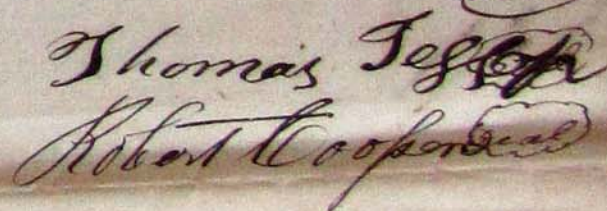 Thomas Jessop
Robert Cooper seal